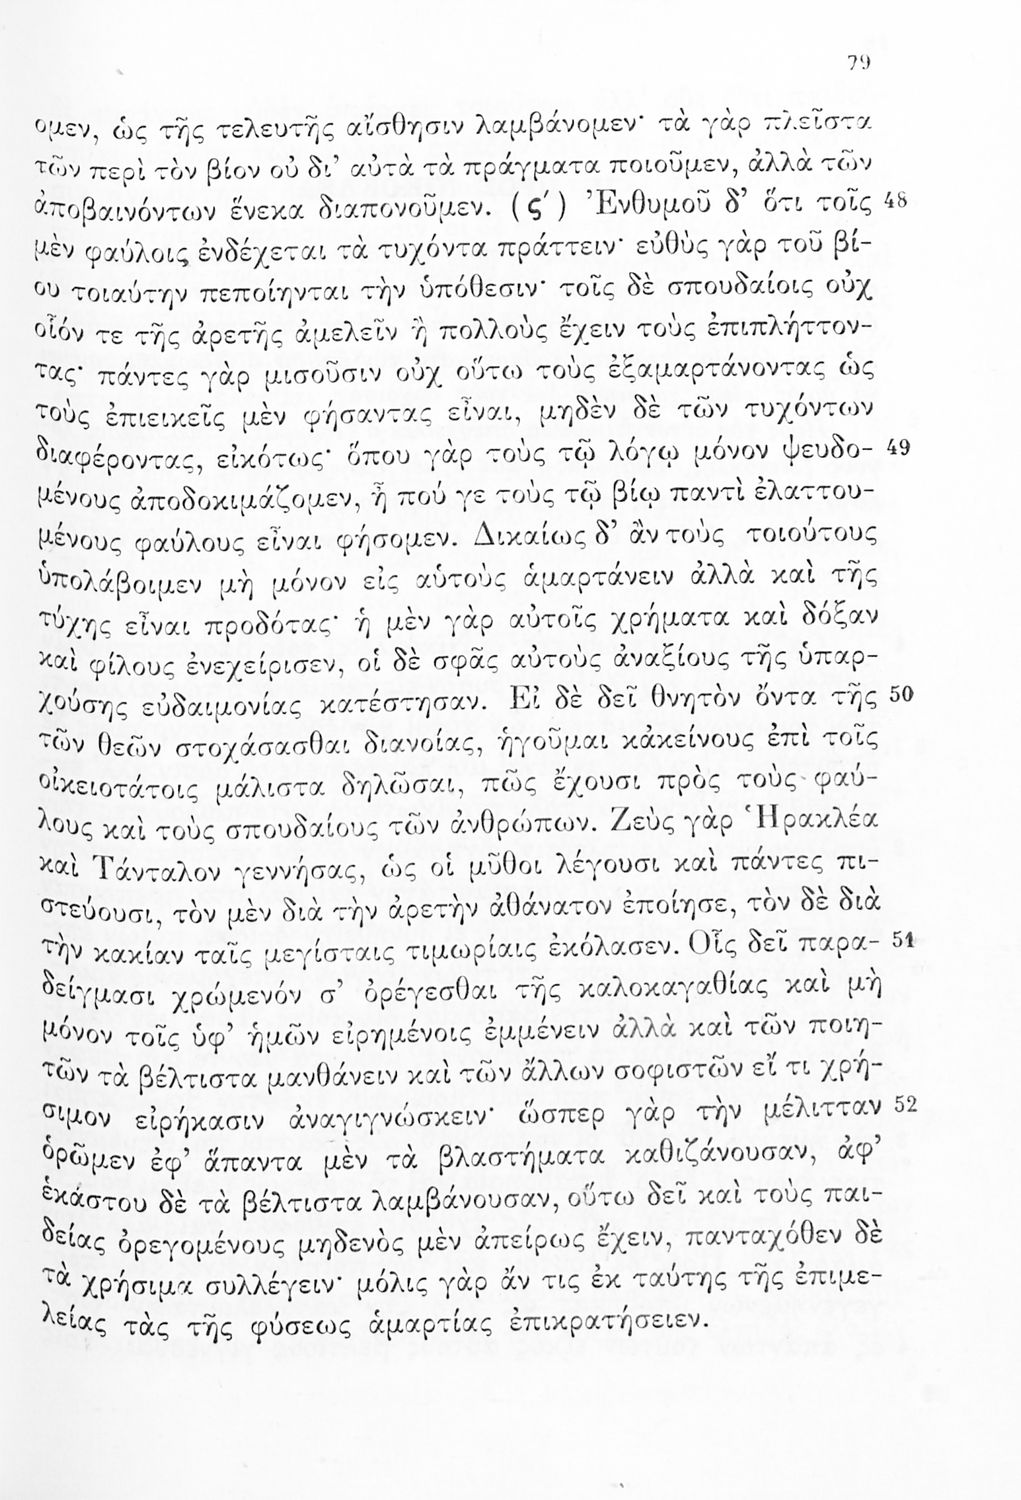 79
ομεν, ὡς τῆς τελευτῆς αἴσθησιν λαμβάνομεν· τὰ γὰρ πλεῖστα
τῶν περὶ τὸν βίον οὐ δι’ αὐτὰ τὰ πράγματα ποιοῦμεν, ἀλλὰ τῶν
ἀποβαινόντων ἕνεκα διαπονοῦμεν. (ς′) Ἐνθυμοῦ δ’ ὅτι τοῖς 48
μὲν φαύλοις ἐνδέχεται τὰ τυχόντα πράττειν· εὐθὺς γὰρ τοῦ βί-
ου τοιαύτην πεποίηνται τὴν ὑπόθεσιν· τοῖς δὲ σπουδαίοις οὐχ
οἷόν τε τῆς ἀρετῆς ἀμελεῖν ἢ πολλοὺς ἔχειν τοὺς ἐπιπλήττον-
τας· πάντες γὰρ μισοῦσιν οὐχ οὕτω τοὺς ἐξαμαρτάνοντας ὡς
τοὺς ἐπιεικεῖς μὲν φήσαντας εἶναι, μηδὲν δὲ τῶν τυχόντων
διαφέροντας, εἰκότως· ὅπου γὰρ τοὺς τῷ λόγῳ μόνον ψευδο- 49
μένους ἀποδοκιμάζομεν, ἦ πού γε τοὺς τῷ βίῳ παντὶ ἐλαττου-
μένους φαύλους εἶναι φήσομεν. Δικαίως δ’ ἂν τοὺς τοιούτους
ὑπολάβοιμεν μὴ μόνον εἰς αὑτοὺς ἁμαρτάνειν ἀλλὰ καὶ τῆς
τύχης εἶναι προδότας· ἡ μὲν γὰρ αὐτοῖς χρήματα καὶ δόξαν
καὶ φίλους ἐνεχείρισεν, οἱ δὲ σφᾶς αὐτοὺς ἀναξίους τῆς ὑπαρ-
χούσης εὐδαιμονίας κατέστησαν. Εἰ δὲ δεῖ θνητὸν ὄντα τῆς 50
τῶν θεῶν στοχάσασθαι διανοίας, ἡγοῦμαι κἀκείνους ἐπὶ τοῖς
οἰκειοτάτοις μάλιστα δηλῶσαι, πῶς ἔχουσι πρὸς τοὺς φαύ-
λους καὶ τοὺς σπουδαίους τῶν ἀνθρώπων. Ζεὺς γὰρ Ἡρακλέα
καὶ Τάνταλον γεννήσας, ὡς οἱ μῦθοι λέγουσι καὶ πάντες πι-
στεύουσι, τὸν μὲν διὰ τὴν ἀρετὴν ἀθάνατον ἐποίησε, τὸν δὲ διὰ
τὴν κακίαν ταῖς μεγίσταις τιμωρίαις ἐκόλασεν. Οἷς δεῖ παρα- 51
δείγμασι χρώμενόν σ’ ὀρέγεσθαι τῆς καλοκαγαθίας καὶ μὴ
μόνον τοῖς ὑφ’ ἡμῶν εἰρημένοις ἐμμένειν ἀλλὰ καὶ τῶν ποιη-
τῶν τὰ βέλτιστα μανθάνειν καὶ τῶν ἄλλων σοφιστῶν εἴ τι χρή-
σιμον εἰρήκασιν ἀναγιγνώσκειν· ὥσπερ γὰρ τὴν μέλιτταν 52
ὁρῶμεν ἐφ’ ἅπαντα μὲν τὰ βλαστήματα καθιζάνουσαν, ἀφ’
ἑκάστου δὲ τὰ βέλτιστα λαμβάνουσαν, οὕτω δεῖ καὶ τοὺς παι-
δείας ὀρεγομένους μηδενὸς μὲν ἀπείρως ἔχειν, πανταχόθεν δὲ
τὰ χρήσιμα συλλέγειν· μόλις γὰρ ἄν τις ἐκ ταύτης τῆς ἐπιμε-
λείας τὰς τῆς φύσεως ἁμαρτίας ἐπικρατήσειεν.